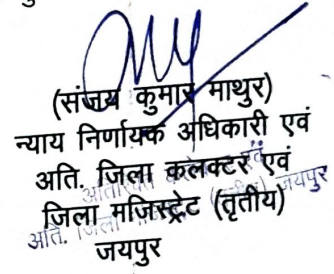 (संजय कुमार माथुर)
न्याय निर्णायक अधिकारी एवं
अति. जिला कलक्टर एवं
जिला मजिस्ट्रेट (तृतीय)
जयपुर
जयपुर